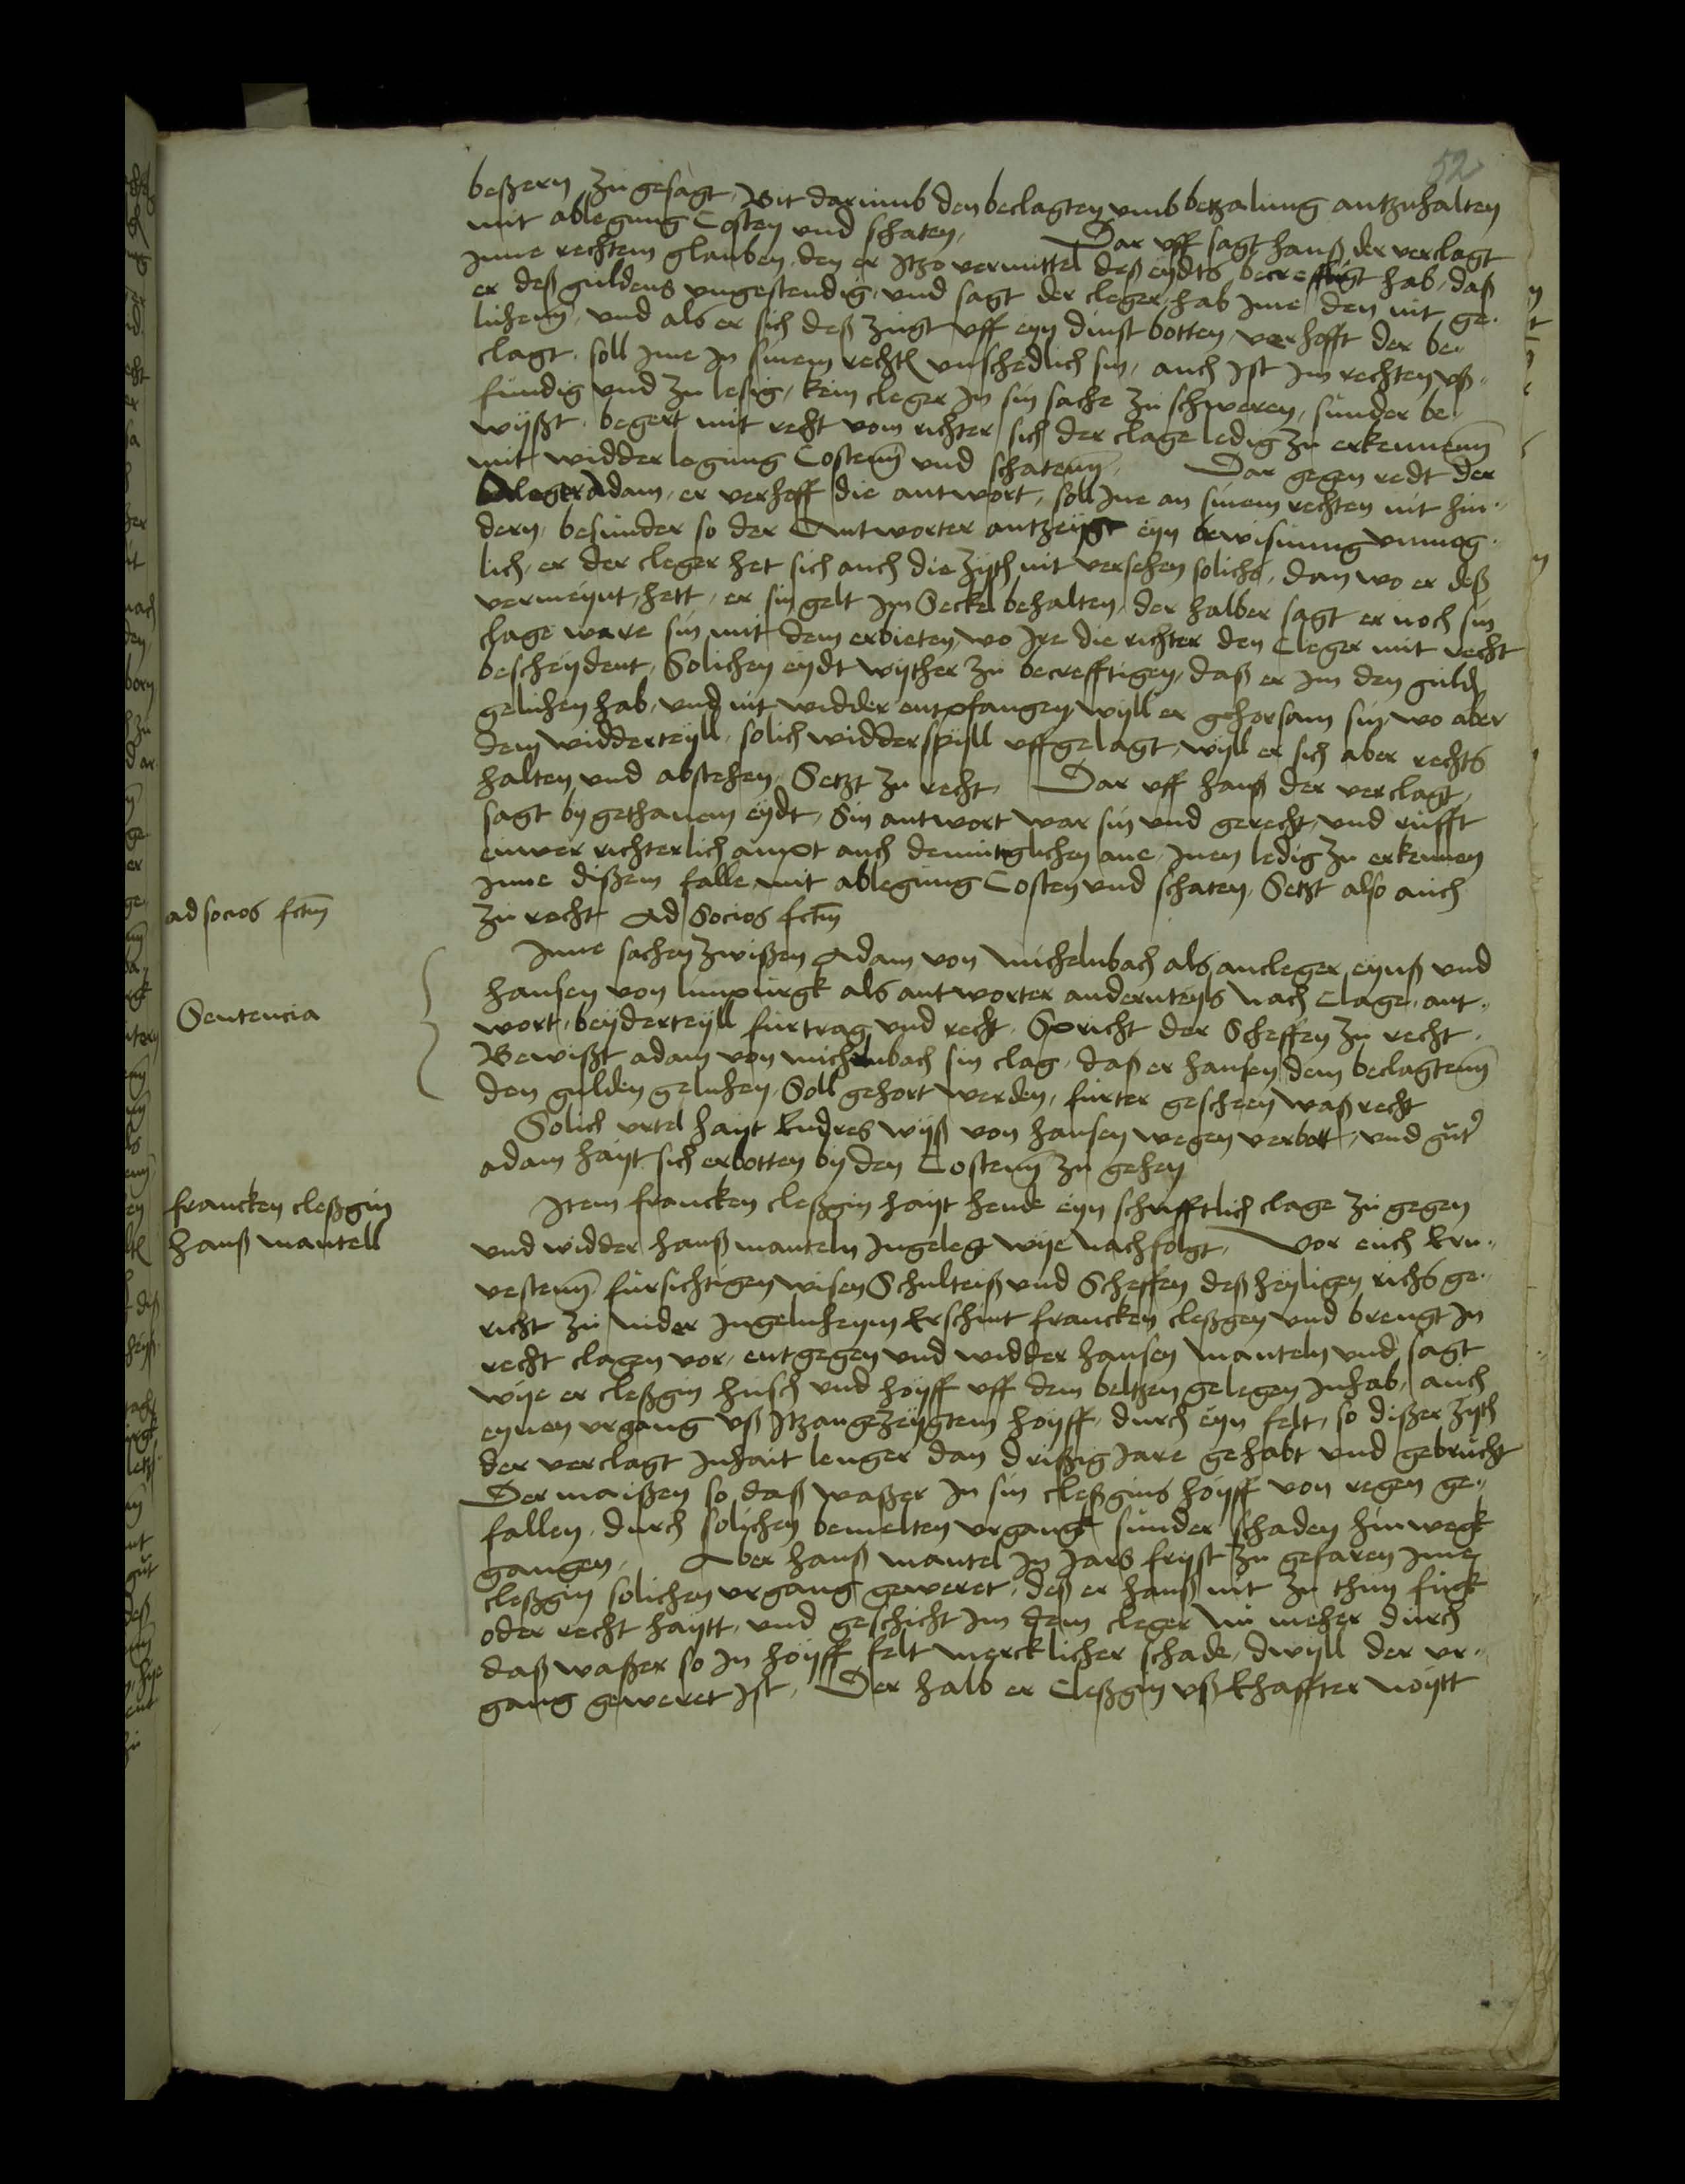 52
beßern zu gesagt, Bit darumb den beclagten umb betzalung antzuhalten
mit ablegung Costen und schaten, Dar uff sagt hanß der verclagt
Inne rechtem glauben, den er Itzo vermittel deß eydts becrefftigt hab, daß
er deß guldens ungestendig, und sagt der cleger hab Ime den nit ge-
luhenn, und als er sich deß zugt uff eyn dinst botten, verhofft der be-
clagt, soll Ime In sinem recht unschedlich sin, auch Ist Im rechten uß-
fundig und zu lesig, kein cleger In sin sache zu schweren, sunder be-
wyßt, begert mit recht vom richter sich der clage ledig zu erkennenn
mit widderlegung Costenn und schatenn, Dar gegen redt der
Cleger Adam, er verhoff die antwort, soll Ime an sinem rechten nit hin-
dern, besunder so der Antworter antzeygt eyn bewisung unmog-
lich, er der cleger het sich auch die zyth nit versehen solichs, dan wo er deß
vermeynt, hett, er sin gelt Im Seckel behalten, der halber sagt er noch sin
clage ware sin mit dem erbieten, wo Ire die richter den Cleger mit recht
bescheydent, Solichen eydt wyther zu becrefftigen, daß er Im den guld
geluhen hab, und nit widder entpfangen, wyll er gehorsam sin, wo aber
dem widderteyll, solich widderspyll uffgelagt, wyll er sich aber rechts
halten und abstehen, Setzt zu recht, Dar uff hanß der verclagt,
sagt by gethanem eydt, Sin antwort war sin und gerecht, und rufft
euwer richterlich ampt auch demutiglichen ane, Inen ledig zu erkennen
Inne dißem falle mit ablegung Costen und schaten, Setzt also auch
ad socios fctm
zu recht Ad Socios fctm
Inne sachen zwißen Adam von michelnbach als ancleger eynß und
hansen von limpurgk als antworter anderuteyls Nach Clage, ant-
Sentencia
wort, beyderteyll furtrag und recht, Spricht der Scheffen zu recht,
Bewißt adam von michelnbach sin clag, daß er hansen dem beclagtenn
den gulden geluhen, Soll gehort werden, furter gescheen waß recht
Solich urtel hayt Endres wyß von hansen wegen verbott, und guter
adam hayt sich erbotten by den Costenn zu gehen
francken cleßgin
Item francken cleßgin hayt heude eyn schrifftlich clage zu gegen
hanß mantell
und widder hanß manteln Ingelegt wye nachfolgt, Vor euch Ern-
vestenn fursichtigen wisen Schulteiß und Scheffen deß heyligen richs ge-
richt zu Nider Ingelnheym Erschint francken cleßgen und brengt In
recht clagen vor, entgegen und widder hansen Manteln und sagt
wye er cleßgin husch und hoyff uff dem beltzen gelegen Inhab, auch
eynen urgang uß Itzangezeygtem hoyff, durch eyn felt, so dißer zyth
der verclagt Inhait lenger dan drißig Jare gehabt und gebrucht
Der maißen so daß waßer In sin cleßgins hoyff von regen ge-
fallen, durch solichen bemelten urgangk sunder schaden hinwegk
gangen, Aber hanß mantel In Jars fryst zu gefaren Ime
cleßgin solichen urgang geweret, deß er hanß nit zu thun fugk
oder recht haytt, und geschicht Im dem cleger nu meher durch
daß waßer so In hoyff felt mercklicher schade, dwyll der ur-
gang geweret Ist, Der halb er Cleßgin uß Ehaffter noytt